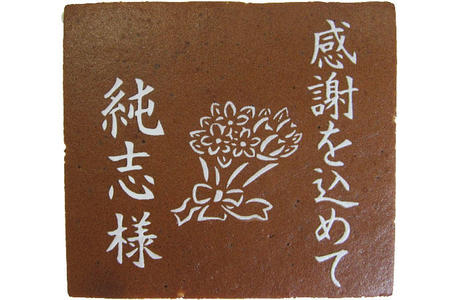 感謝を込めて
純志様